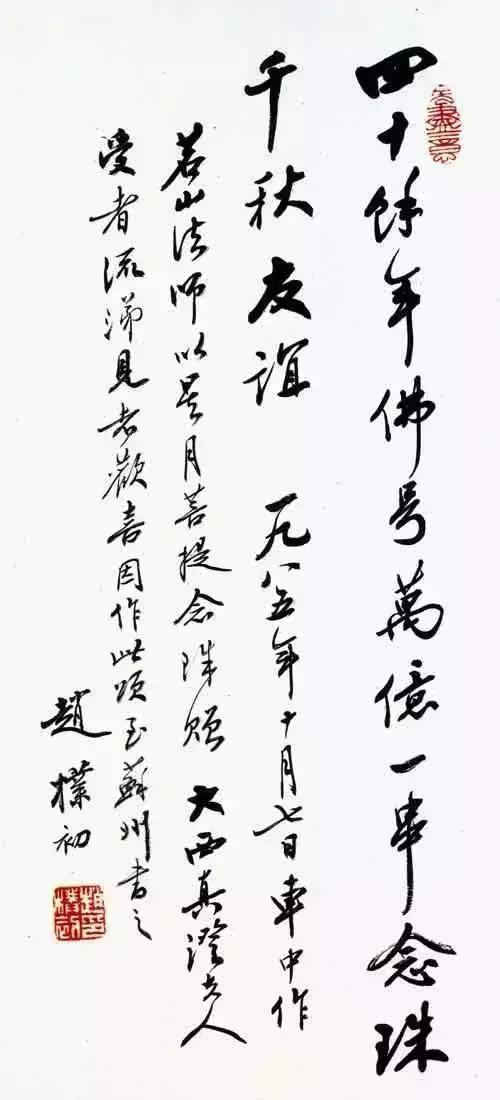 四十餘年佛号萬億一串念珠
千秋友誼 一九八五年十月七日車中作
茗山法师以星月菩提念珠贈 大西真澄夫人
受者流涕見者歡喜因作此頌至蘇州書之
趙樸初